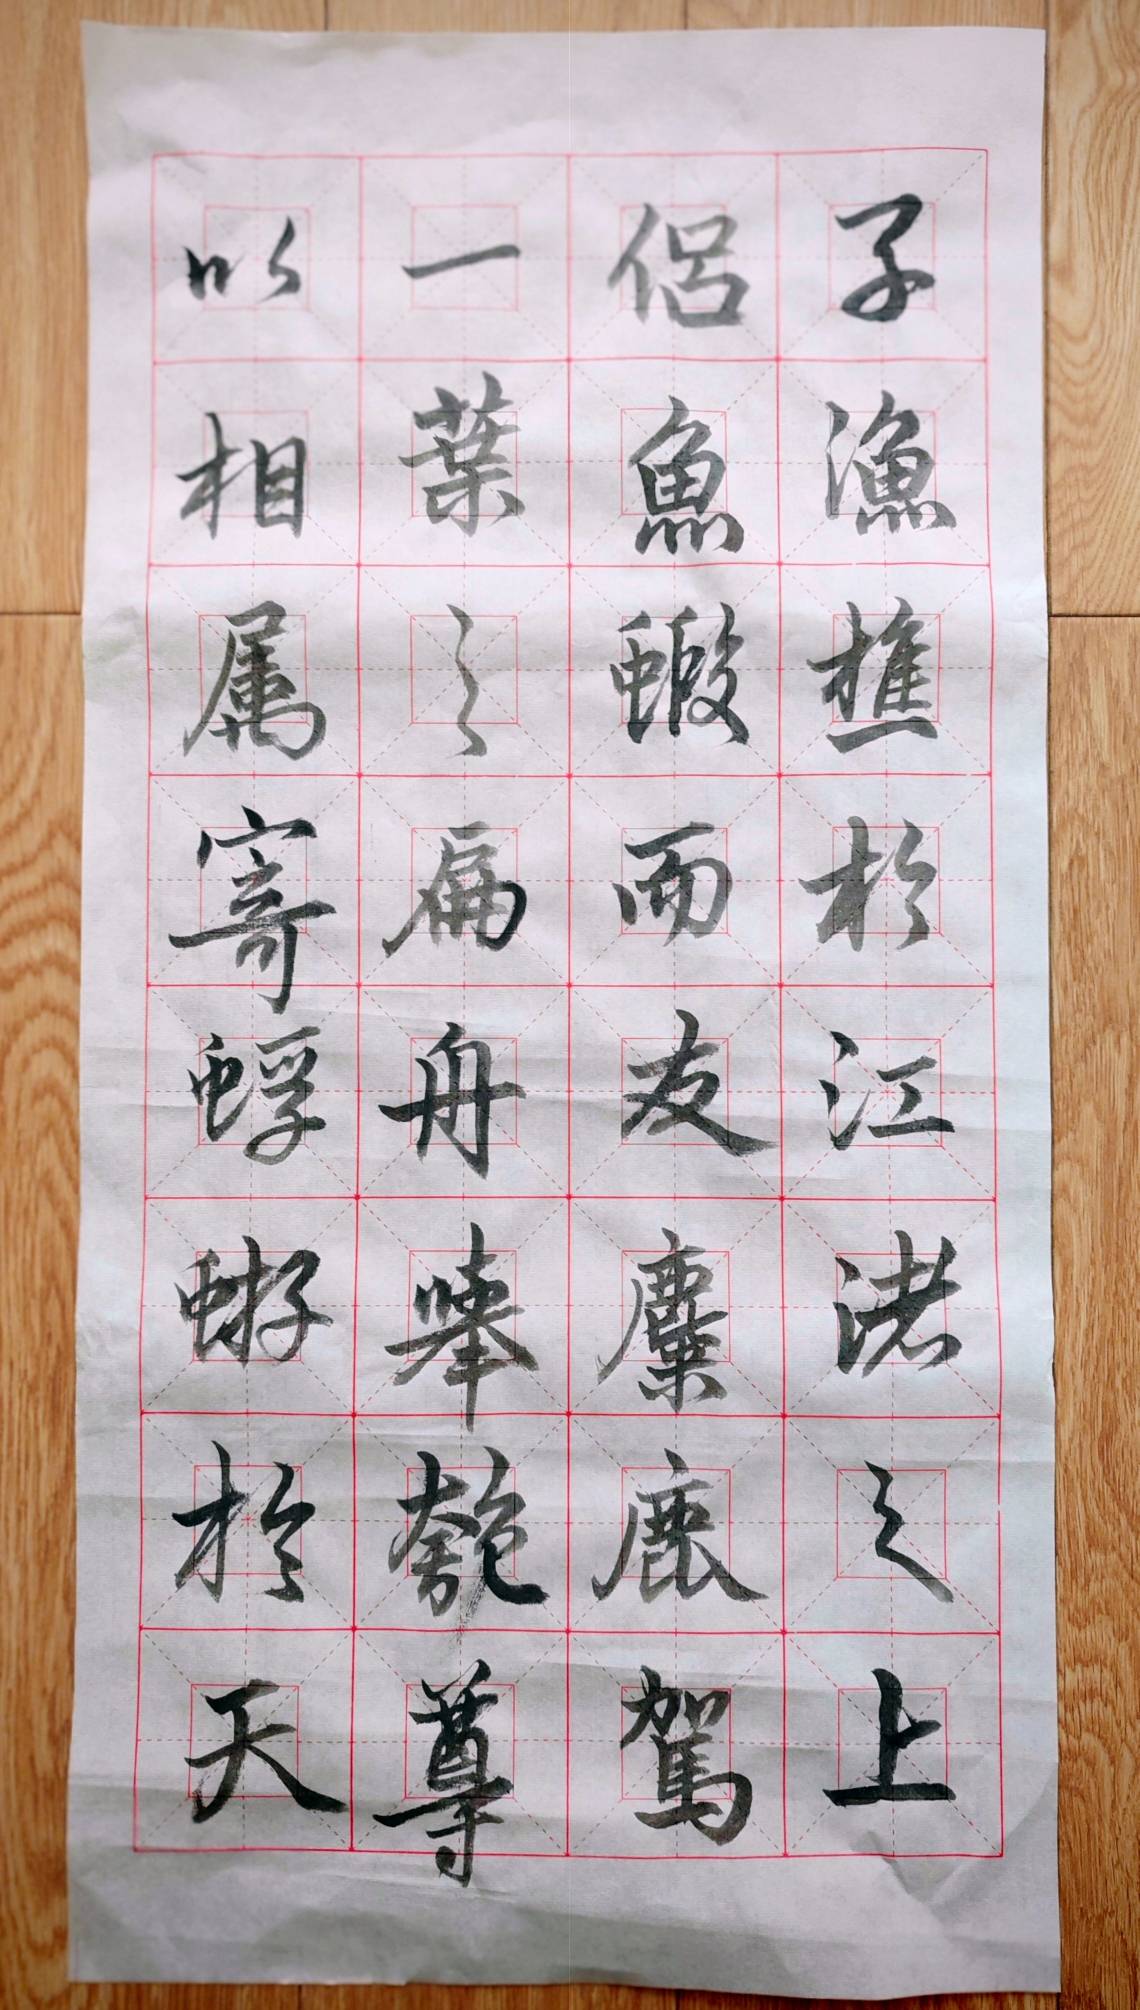 子漁樵於江渚之上
侶魚蝦而友麋鹿駕
一葉之扁舟舉匏尊
以相属寄蜉蝣於天